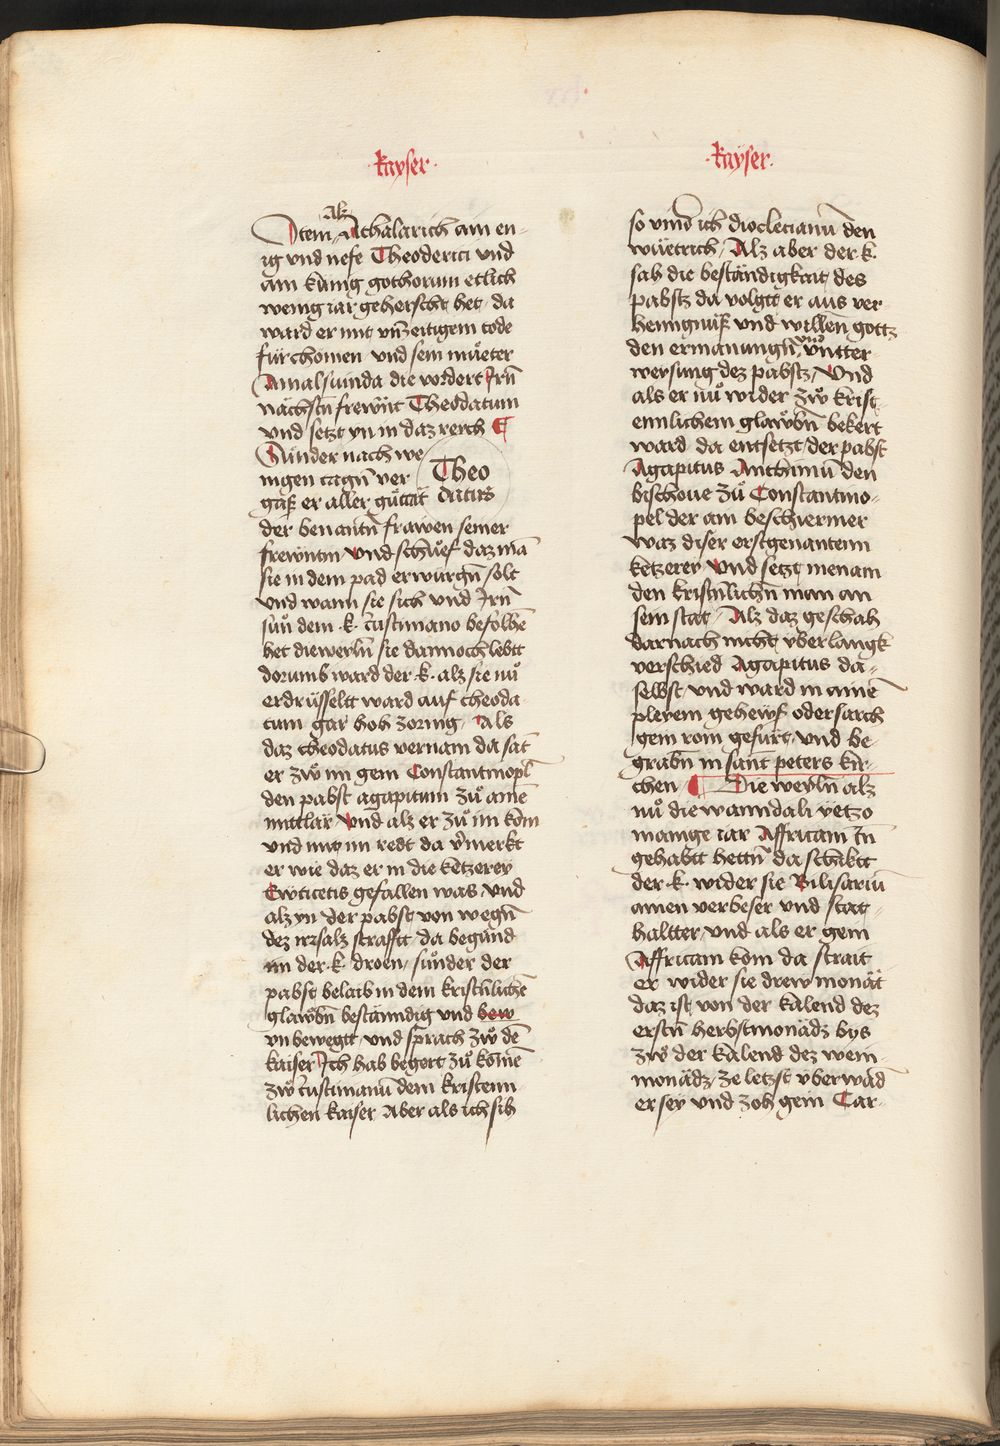 ·kayser·
Alz
Item Athalarich ain en-
ig vnd nefe Theoderici vnd
ain künig gothorum etlich
wenig iar geherscht het, da
ward er mit vnzeitigem tode
für chomen vnd sein müeter
Amalsuinda die vordert Irn̄
nächstn̄ frewnt Theodatum
vnd setzt yn in daz reich
Sunder nach we
nigen tagn̄ ver
Theo
datus
gaß er aller gůttät
der benantn̄ frawen seiner
frewntin vnd schuͦf daz mā
sie in dem pad erwürgn̄ solt
vnd wann sie sich vnd Irn̄
sun dem ·k· iustiniano befolhē
het dieweiln̄ sie dannoch lebtt
dorumb ward der ·k· alz sie nuͦ
erdrüsseltt ward auf theoda
tum gar hoh zornig, Als
daz theodatus vernam da sāt
er zwͦ im gem Constantinopl̄
den pabst agapitum zuͦ ainē
mittlär Vnd alz er zuͦ im kom
vnd mit im redt da v̄merkt
er wie daz er in die ketzerey
Ewticetis gefallen was, vnd
alz yn der pabst von wegn̄
dez irrsalz strafftt, da begund
im der ·k· droen, suͦnder der
pabst belaib in dem kristn̄lichē
glawbn̄ bestänndig vnd bew
vn bewegtt, vnd sprach zwͦ dē
kaiser Ich hab begert zuͦ komē
zwͦ iustinianū dem kristenn-
lichen kaiser Aber als ich sih
·kayser·
so vind ich dioclecianū den
wüetrich, Alz aber der ·k·
sah die beständigkait des
pabstz da volgtt er aus ver
hennguiß vnd willen gottz
den ermanungn̄ vnd vntter
weysung dez pabstz, Vnd
als er nuͦ wider zwͦ krist-
ennlichem glawbn̄ bekert
ward da entsetzt der pabst
Agapitus Anthimū den
bischoue zuͦ Constantino-
pel der ain beschiermer
waz diser erstgenantenn
ketzerey Vnd setzt menam
den kristn̄lichn̄ man an
sein stat, Alz daz geschah
darnach nicht vber langk
verschied Agapitus da-
selbst, vnd ward in ainē
pleyem gehewß oder sarch
gem rom gefürt, vnd be-
grabn̄ in sant peters kir-
chen, Die weyln̄ alz
nuͦ die wanndali yetzo
mainge iar Affricam Inn
gehabtt hettn̄ da schiktt
der ·k· wider sie Bilisariū
ainen verweser vnd stat-
haltter, vnd als er gem
Affricam kom da strait
er wider sie drew monät
daz ist von der kalend dez
erstn̄ herbstmonädz bys
zwͦ der kalend dez wein-
monädz, ze letzst vberwād
er sey vnd zoh gem Car-